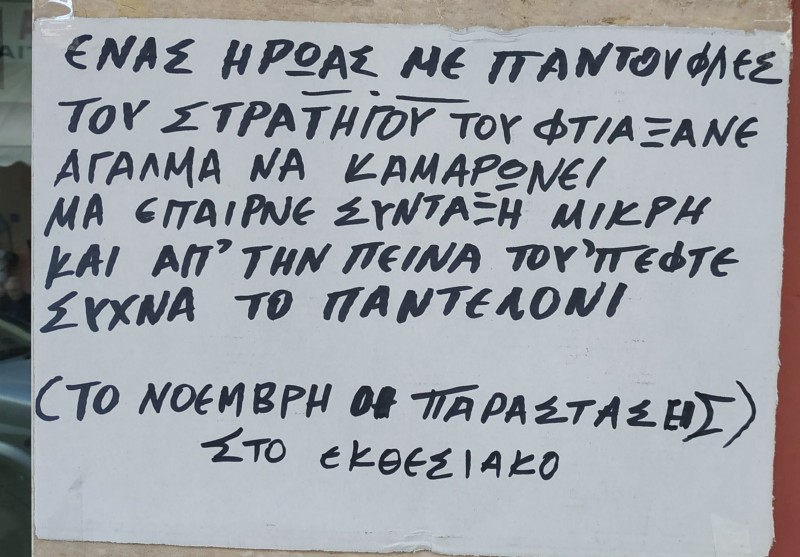 ΕΝΑΣ ΗΡΩΑΣ ΜΕ ΠΑΝΤΟΥΦΛΕΣ
ΤΟΥ ΣΤΡΑΤΗΓΟΥ ΤΟΥ ΦΤΙΑΞΑΝΕ
ΑΓΑΛΜΑ ΝΑ ΚΑΜΑΡΩΝΕΙ
ΜΑ ΕΠΑΙΡΝΕ ΣΥΝΤΑΞΗ ΜΙΚΡΗ
ΚΑΙ ΑΠ' ΤΗΝ ΠΕΙΝΑ ΤΟΥ 'ΠΕΦΤΕ
ΣΥΧΝΑ ΤΟ ΠΑΝΤΕΛΟΝΙ
(ΤΟ ΝΟΕΜΒΡΗ ΟΙ ΠΑΡΑΣΤΑΣΕΙΣ)
ΣΤΟ ΕΚΘΕΣΙΑΚΟ